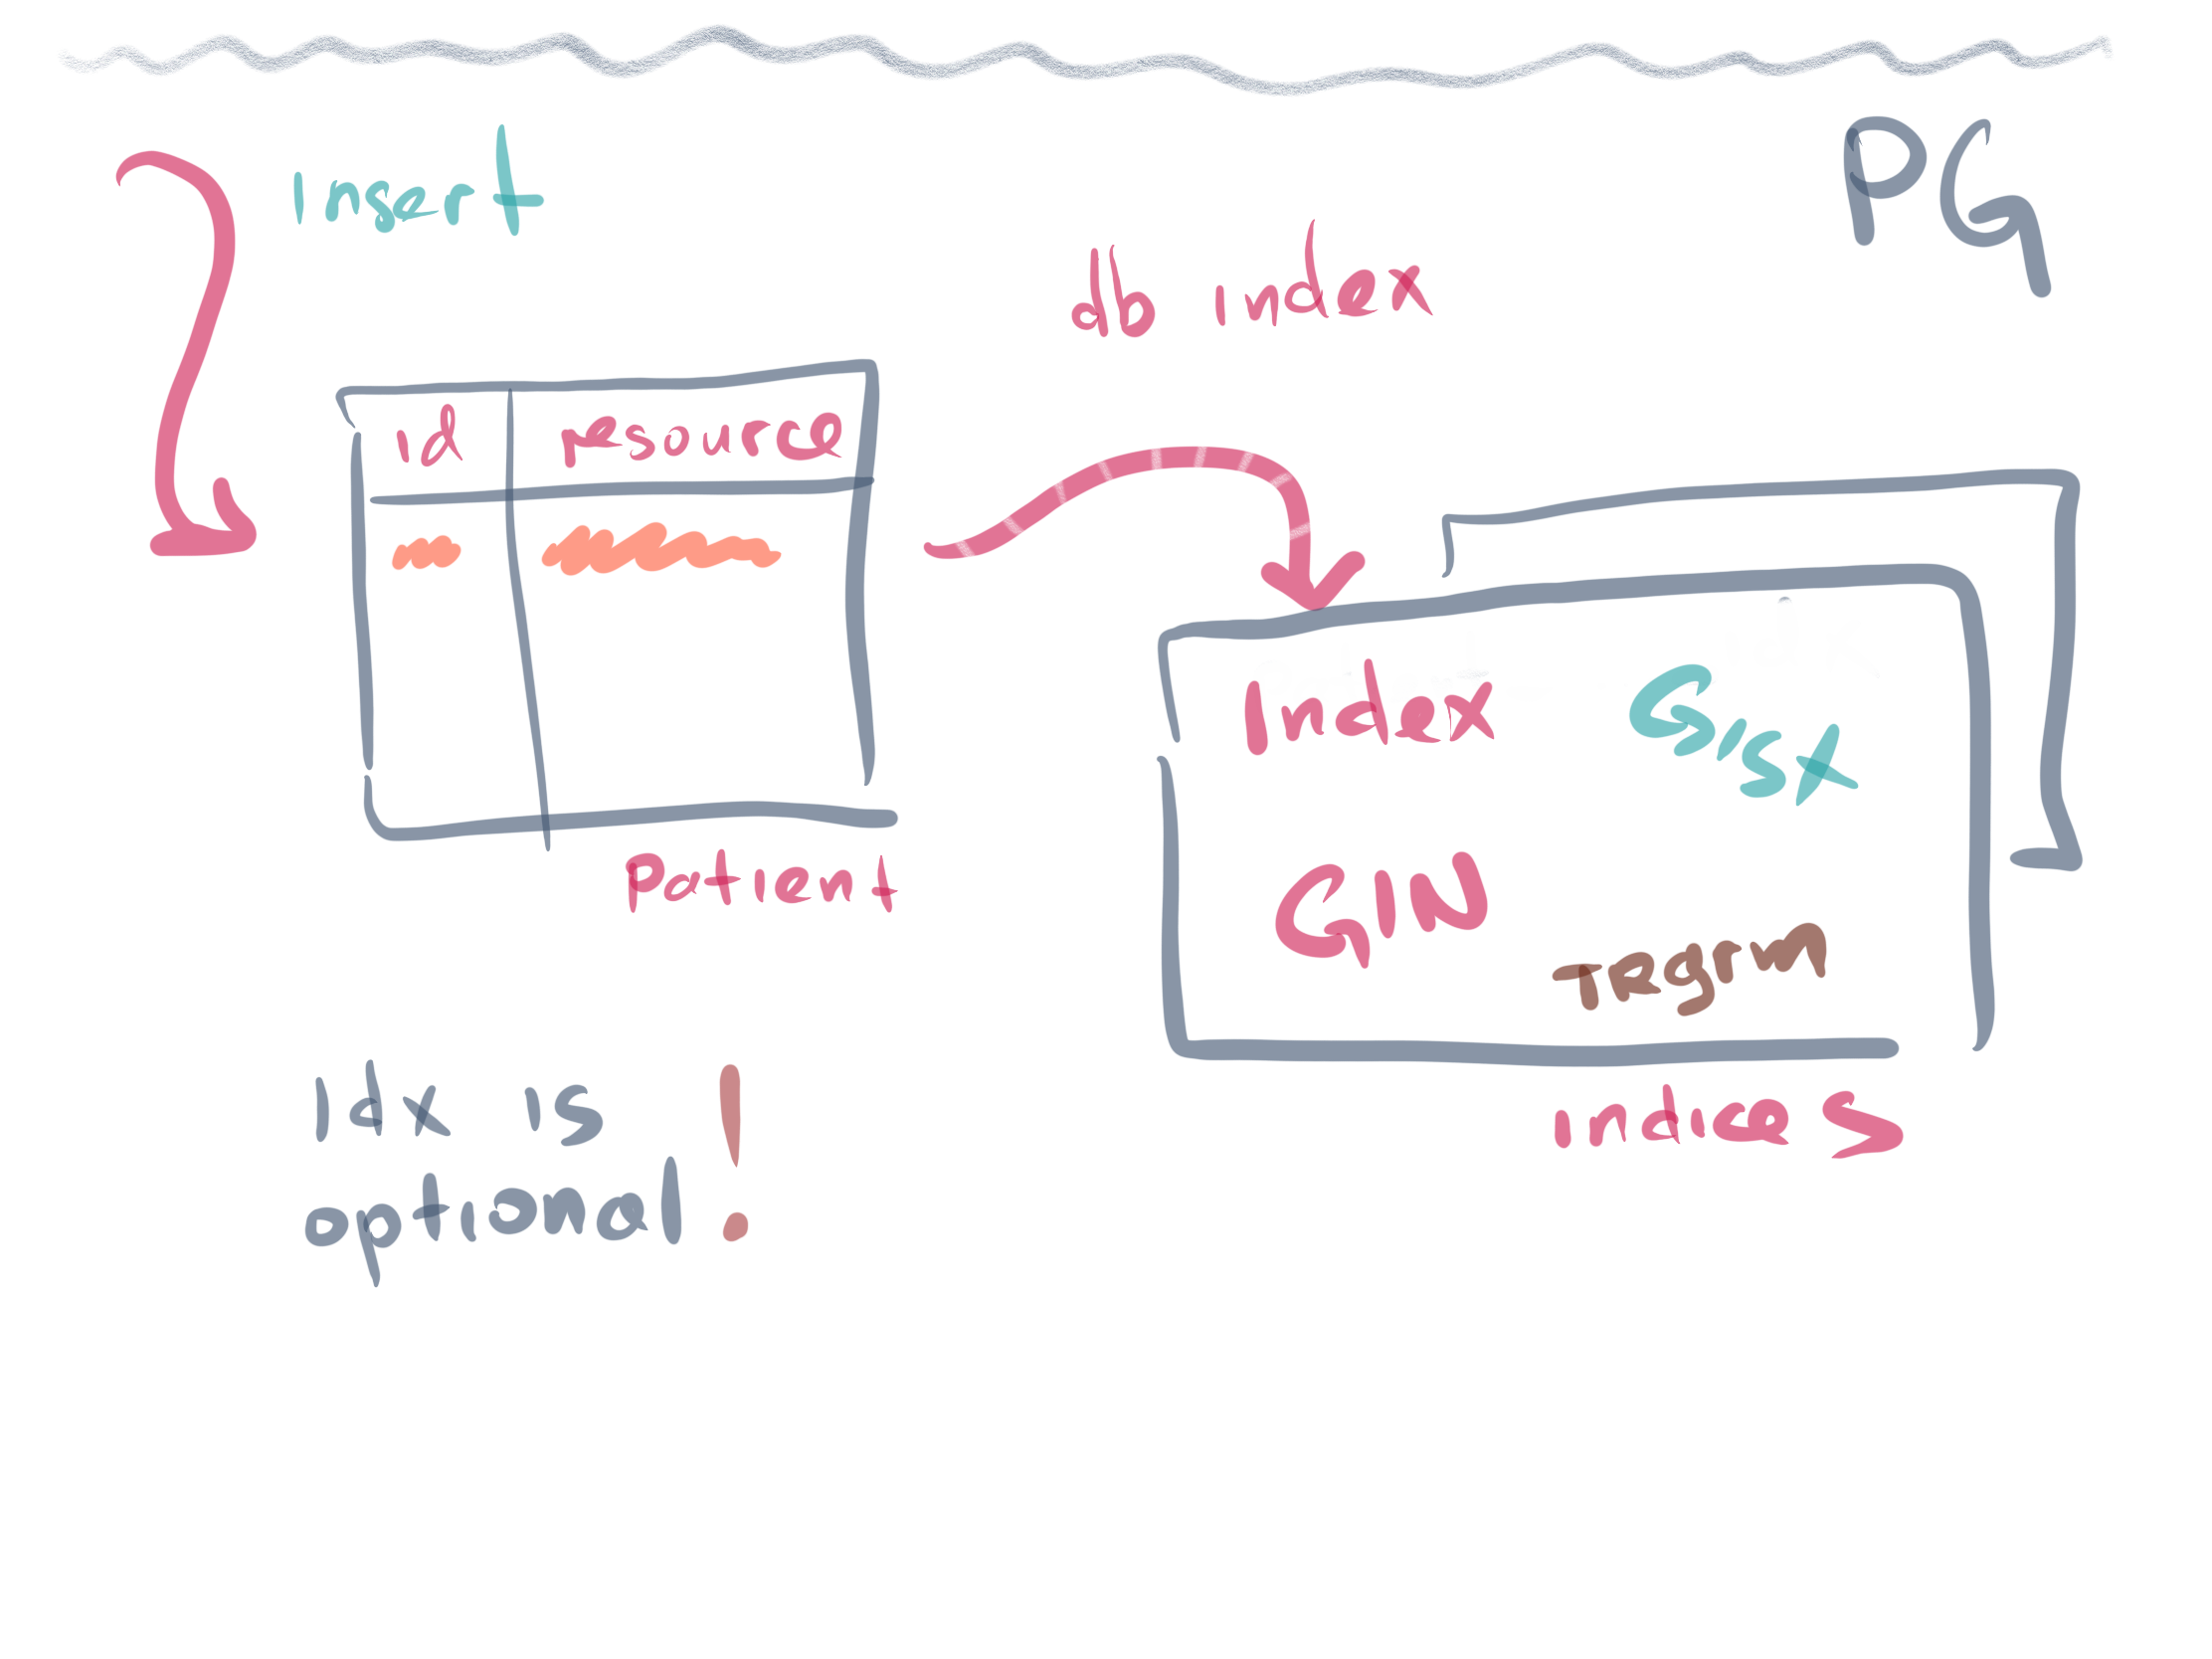 Insert
PG
db index
id resource
Patient
Index GsisT
GIN
TRgrm
indices
Idx is !
optional